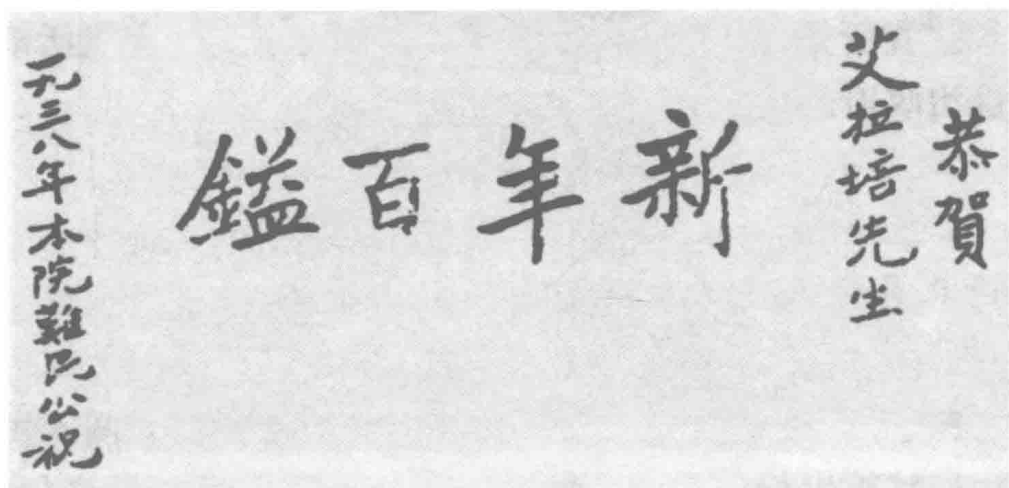 恭賀
艾拉培先生
新年百鎰
一九三八年本院難民公祝